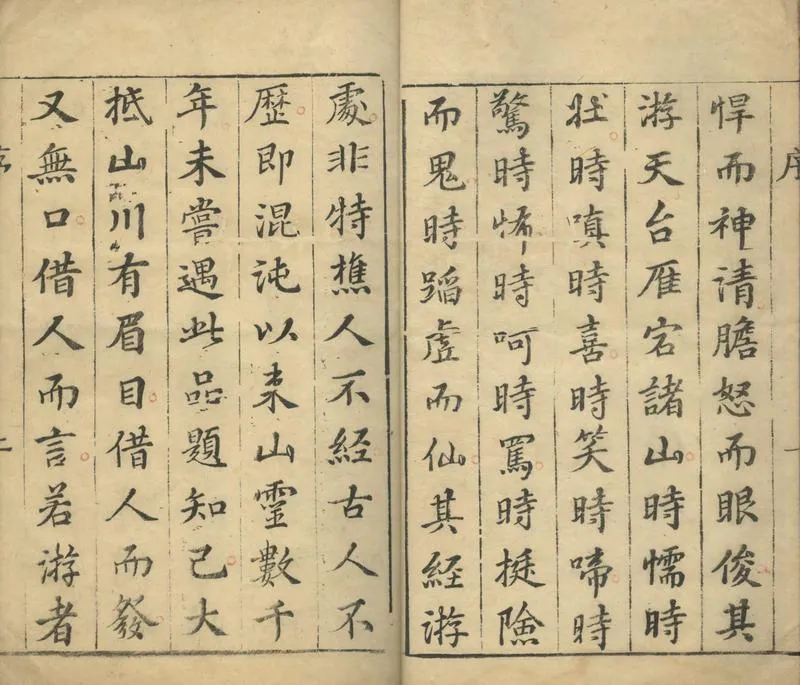 序 一
悍而神清膽怒而眼俊其
游天台雁宕諸山時懦時
壯時嗔時喜時笑時啼時
驚時怖時呵時罵時挺險
而鬼時蹈虛而仙其經游
處非特樵人不經古人不
歷即混沌以來山靈數千
年未嘗遇此品題知己大
抵山川有眉目借人而發
又無口借人而言若游者